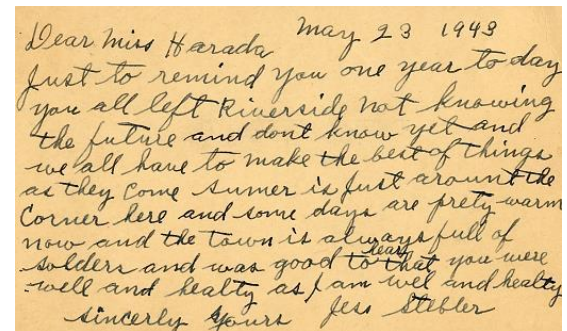 May 23 1943
Dear Miss Harada
Just to remind you one year to day
you all left Riverside not knowing
the future and dont know yet and
we all have to make the best of things
as they come sumer is just around the
Corner here and some days are prety warm
now and the town is always full of
solders and was good to hear that you were
well and healty as I am wel and healty
sincerly yours Jess Stebler